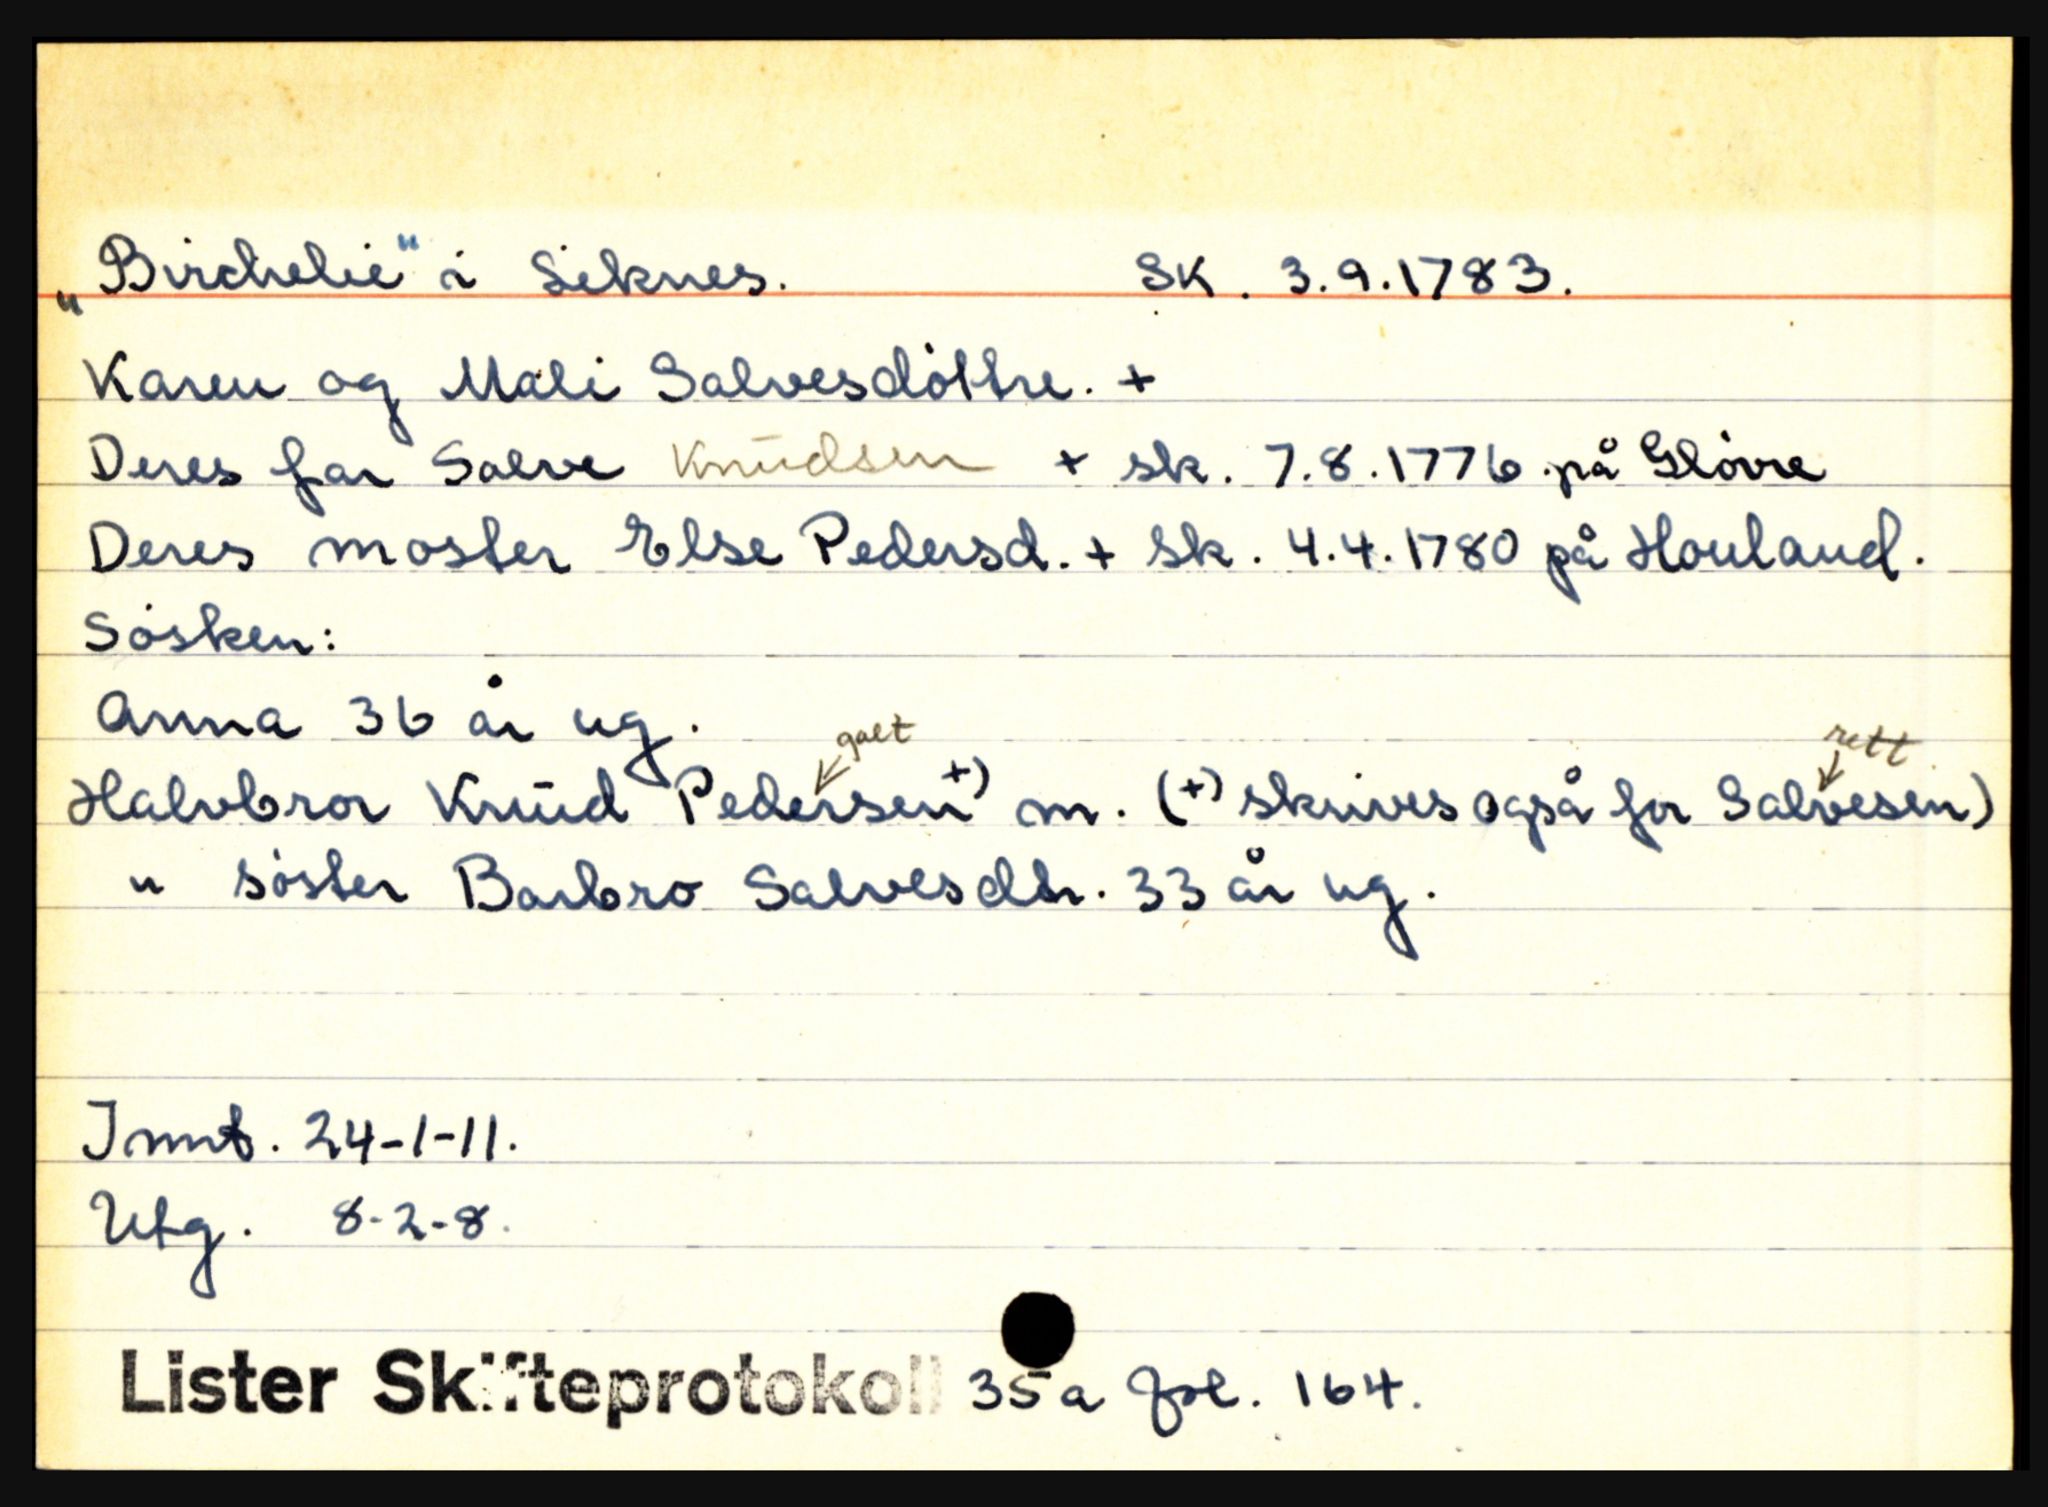 „Birchelie" i Seknes. SK. 3.9.1783.
Karen og Mali Salvesdöttre. +
Deres far Salve Knudsen + sk. 7.8.1776 på Glövre
Deres moster Else Pedersd. + Sk. 4.4.1780 på Houland.
Sösken:
Anna 36 år ug.
galt rett
Halvbror Knud Pedersen +) m. (+) skrives også for Salvesen)
" söster Barbro Salvesdtr. 33 år ug.
Innt. 24-1-11.
Utg. 8-2-8.
Lister Skifteprotokoll 35a fol. 164.